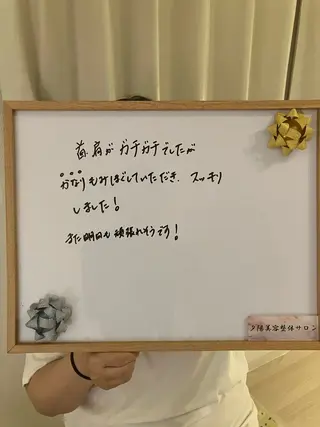 首肩がガチガチでしたが
かなりもみほぐしていただき、スッキリ
しました!
また明日も頑張れそうです!
夕陽美容整体サロン